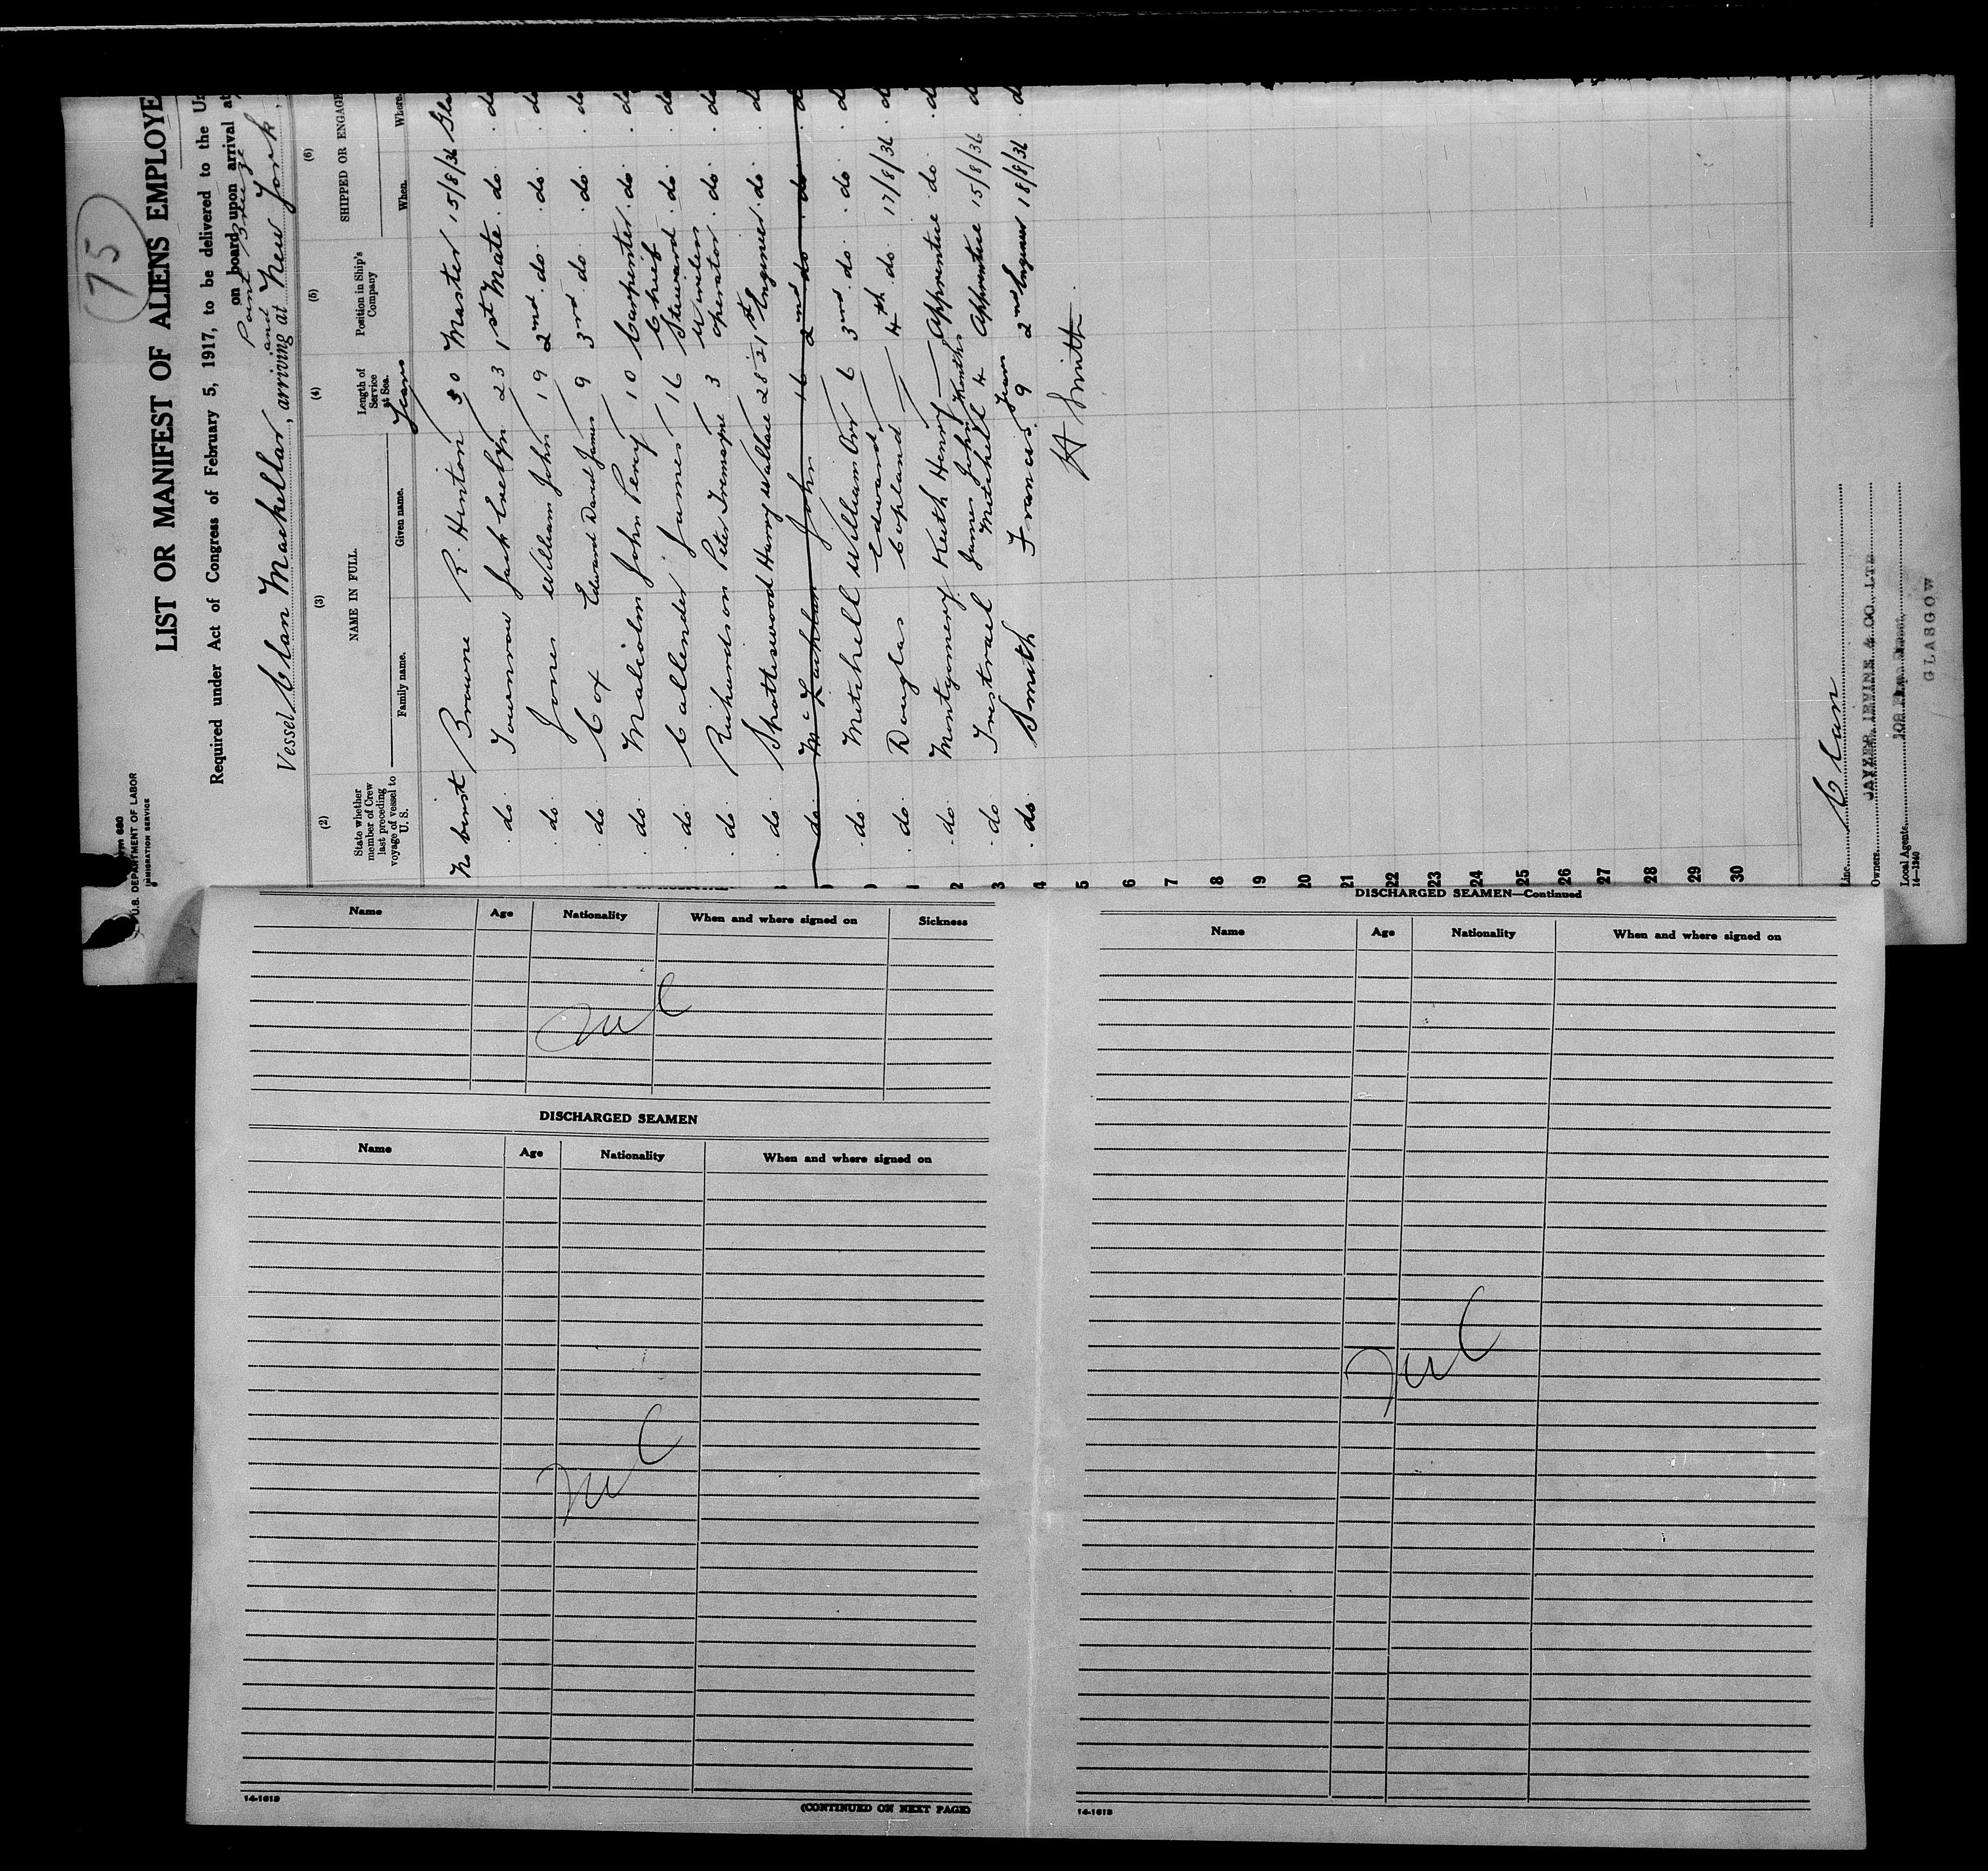 75
Form 680
U.S. DEPARTMENT OF LABOR
IMMIGRATION SERVICE
LIST OR MANIFEST OF ALIENS EMPLOYE
Required under Act of Congress of February 5, 1917, to be delivered to the Un
on board upon arrival at
Point Breeze
and
Vessel Clan Mackellar, arriving at New York,
(2) (3) (4) (5) (6)
State whether member of Crew last preceding voyage of vessel to U. S.
NAME IN FULL.
Family name. Given name.
Length of Service at Sea.
Years
Position in Ship's Company
SHIPPED OR ENGAGE
When. Where.
Browne R. Hinton 30 Master 15/8/36 Gla
do. Townrow Jack Evelyn 23 1st Mate. do. do
do. Jones William John 19 2nd. do. do. do
do. Cox Edward David James 9 3rd. do. do. do
do. Malcolm John Percy 10 Carpenter. do. do
do. Callender James 16 Chief Steward. do. do
do. Richardson Peter Tremayne 3 Wireless operator. do. do
do. Spottiswood Harry Wallace 28 21 1st Engineer. do. d
do. McLachlan John 16 2nd do. do. d
do. Mitchell William Orr 6 3rd. do. do. d
do. Douglas Edward Copland 4th do 17/8/36. d
do. Montgomery Keith Henry Apprentice do. d
do. Trestrail James John Mitchell 4 Months Apprentice 15/8/36 d
do. Smith Francis 9 Years 2nd Engineer 18/8/36 d
H Smith
5
6
7
18
19
20
21
22
23
24
25
26
27
28
29
30
Line Clan
Owners CAYZER IRVINE & CO. LTD
Local Agents
109
GLASGOW
14—1240
Name Age Nationality When and where signed on Sickness
Nil
DISCHARGED SEAMEN
Name Age Nationality When and where signed on
Nil
14-1618
(CONTINUED ON NEXT PAGE)
DISCHARGED SEAMEN—Continued
Name Age Nationality When and where signed on
Nil
14-1618